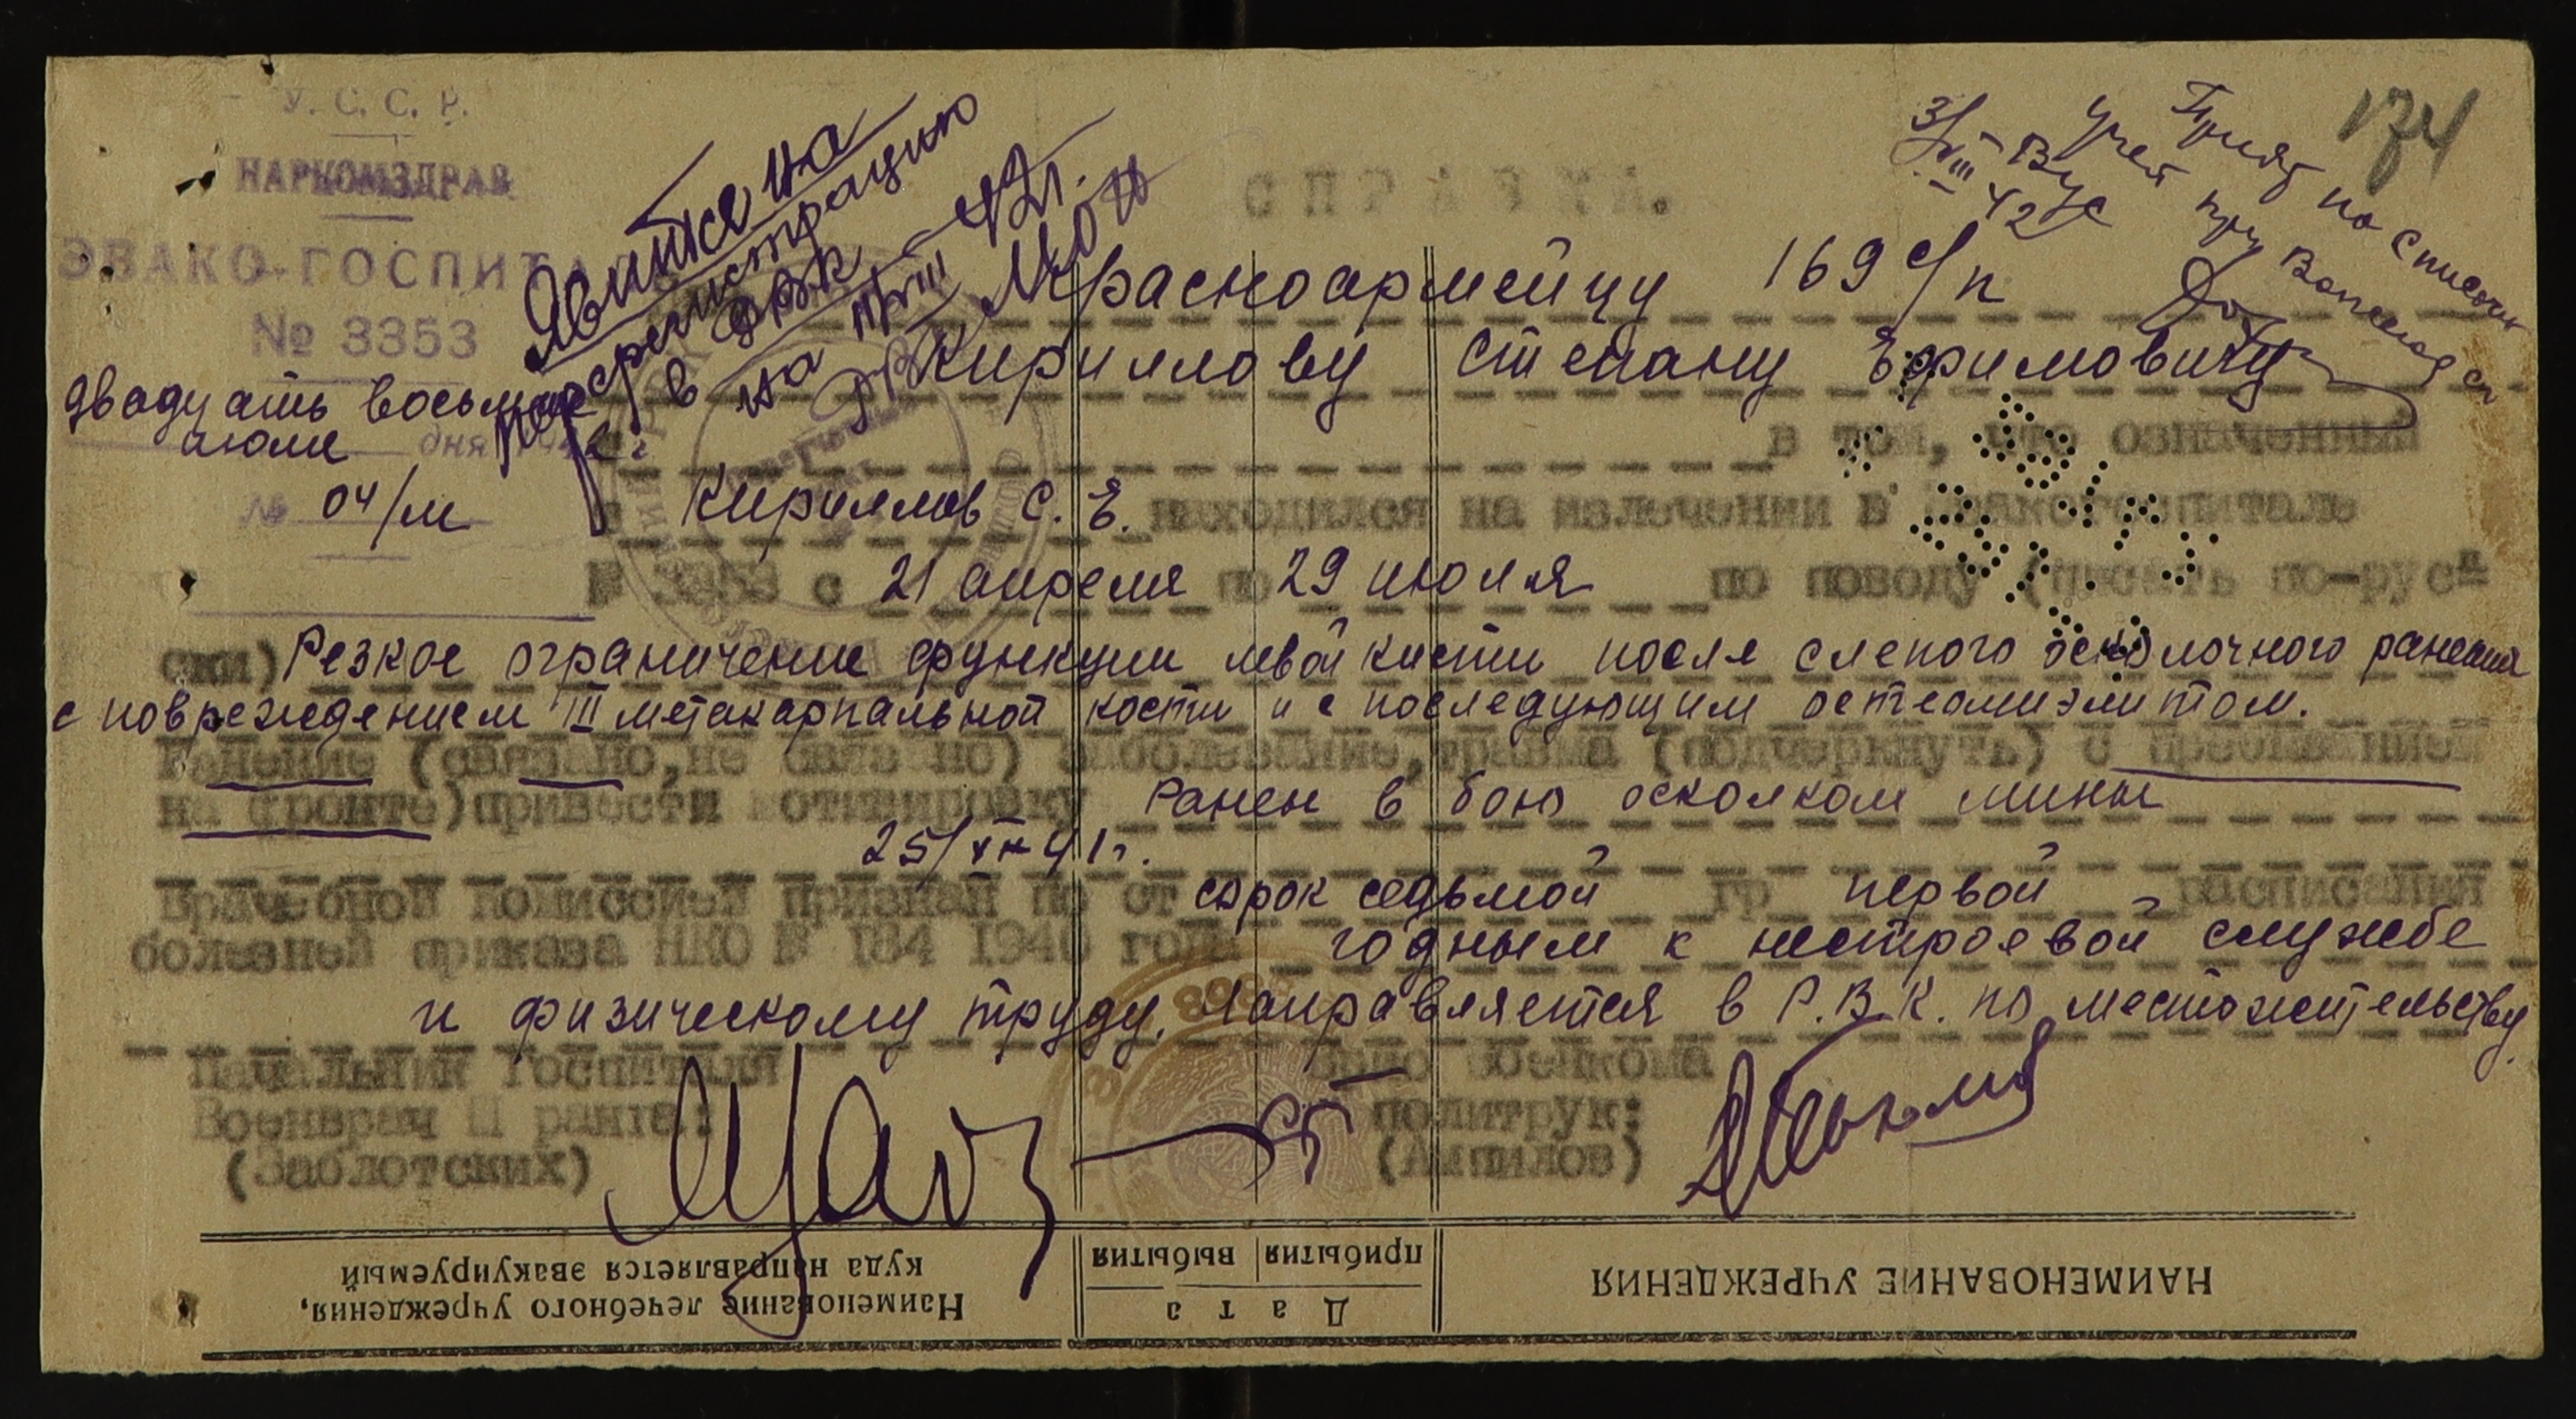 У. С. С. Р.
НАРКОМЗДРАВ
ЭВАКО-ГОСПИТ
№ 3353
двадцать восьмое
июля дня
№ 04/м
Явиться на
перерегистрацию
в РВК
на 42г.
174
Принят по списку
учет при
ВУС
3/VIII 42
СПРАВКА.
Красноармейцу 169 с/п
Кириллову Степану Ефимовичу
в том, что означенный
Кириллов С. Е. находился на излечении в Эвакогоспитале
№ 3353 с 21 апреля по 29 июля по поводу (писать по-рус-
ски) Резкое ограничение функции левой кисти после слепого осколочного ранения
с повреждением III метакарпальной кости и с последующим остеомиэлитом.
Ранение (связано, не связано) заболевание, травма (подчеркнуть) с пребыванием
на фронте) привести Ранен в бою осколком мины
25/XII 41г.
Врачебной комиссией признан по ст сорок седьмой гр первой расписания
болезней приказа НКО № 184 1940 года годным к нестроевой службе
и физическому труду. Направляется в Р.В.К. по местожительству
Начальник Госпиталя
Военврач II ранга:
(Заблотских)
Врио Военкома
политрук:
(Ампилов)
НАИМЕНОВАНИЕ УЧРЕЖДЕНИЯ
Дата
прибытия
выбытия
Наименование лечебного учреждения,
куда направляется эвакуируемый